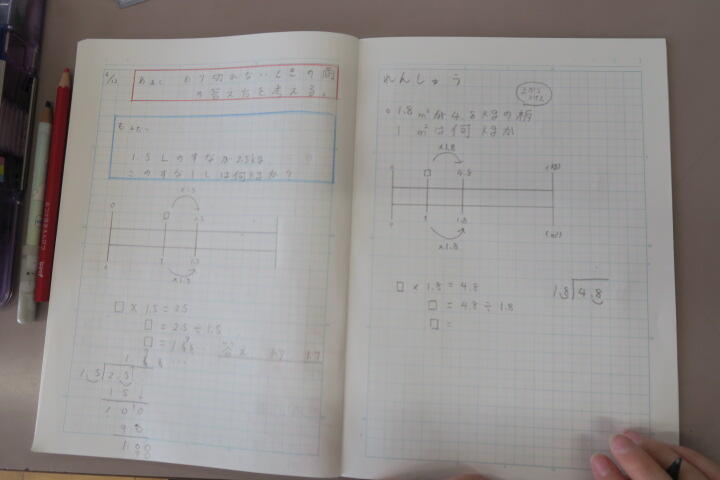 6/12
めあて わり切れないときの商
の答え方を考える。
もんだい
1.5Lのすなが2.5kg
このすな1Lは何kgか?
×1.5
0 □ 2.5
0 1 1.5
×1.5
□ × 1.5 = 2.5
□ = 2.5 ÷ 1.5
□ = 1.66… 答え 1.7
1.66…
1.5 2.5
1 5
1 0 0
9 0
1 0 0
9 0
れんしゅう
○ 1.8 m² が 4.8 kgの
1 m² は何 kgか
×1.8
0 □ 4.8 (kg)
0 1 1.8 (m²)
×1.8
□ × 1.8 = 4.8
□ = 4.8 ÷ 1.8
□ =
1.8 4.8